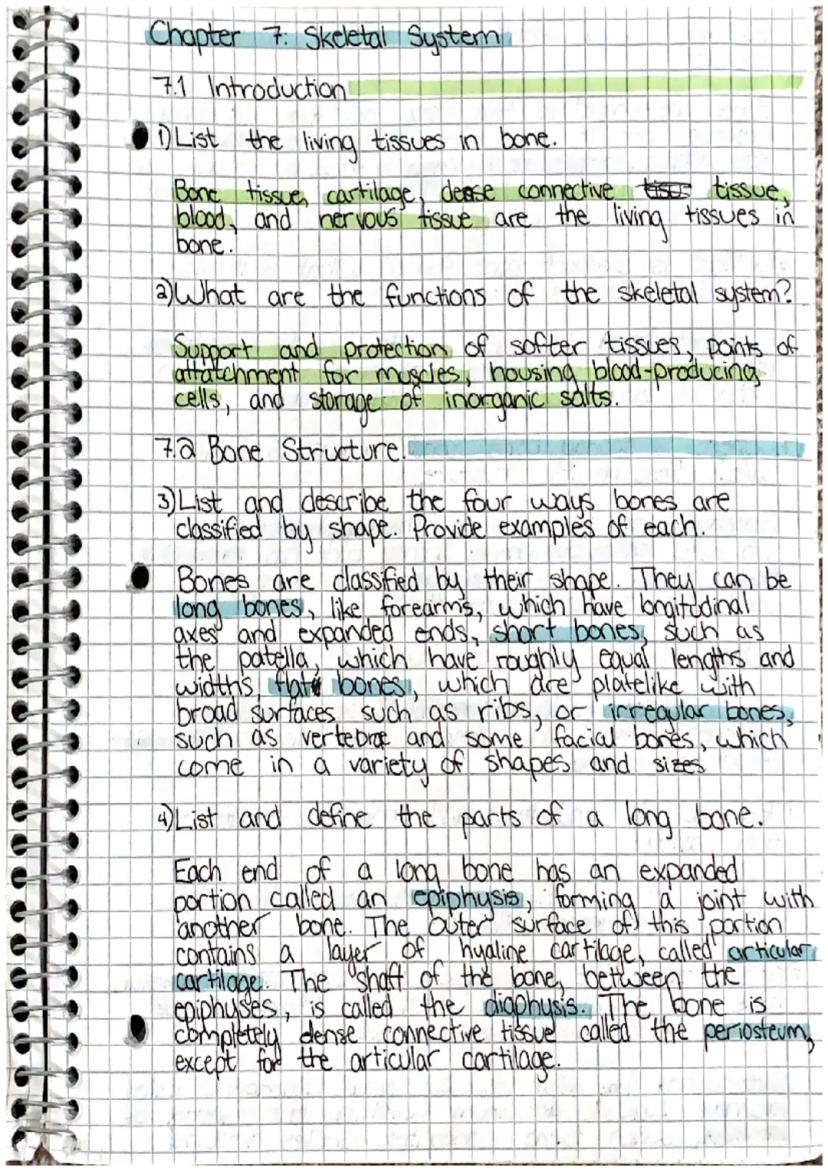 Chapter 7: Skeletal System
7.1 Introduction
1) List the living tissues in bone.
Bone tissue, cartilage, dense connective tissue,
blood, and nervous tissue are the living tissues in
bone.
2) What are the functions of the skeletal system?
Support and protection of softer tissues, points of
attatchment for muscles, housing blood-producing
cells, and storage of inorganic salts.
7.2 Bone Structure.
3) List and describe the four ways bones are
classified by shape. Provide examples of each.
Bones are classified by their shape. They can be
long bones, like forearms, which have longitudinal
axes and expanded ends, short bones, such as
the patella, which have roughly equal lengths and
widths, flat bones, which are platelike with
broad surfaces such as ribs, or irregular bones,
such as vertebrae and some facial bones, which
come in a variety of shapes and sizes
4) List and define the parts of a long bone.
Each end of a long bone has an expanded
portion called an epiphysis, forming a joint with
another bone. The outer surface of this portion
contains a layer of hyaline cartilage, called articular
cartilage. The shaft of the bone, between the
epiphyses, is called the diaphysis. The bone is
completely dense connective tissue called the periosteum,
except for the articular cartilage.